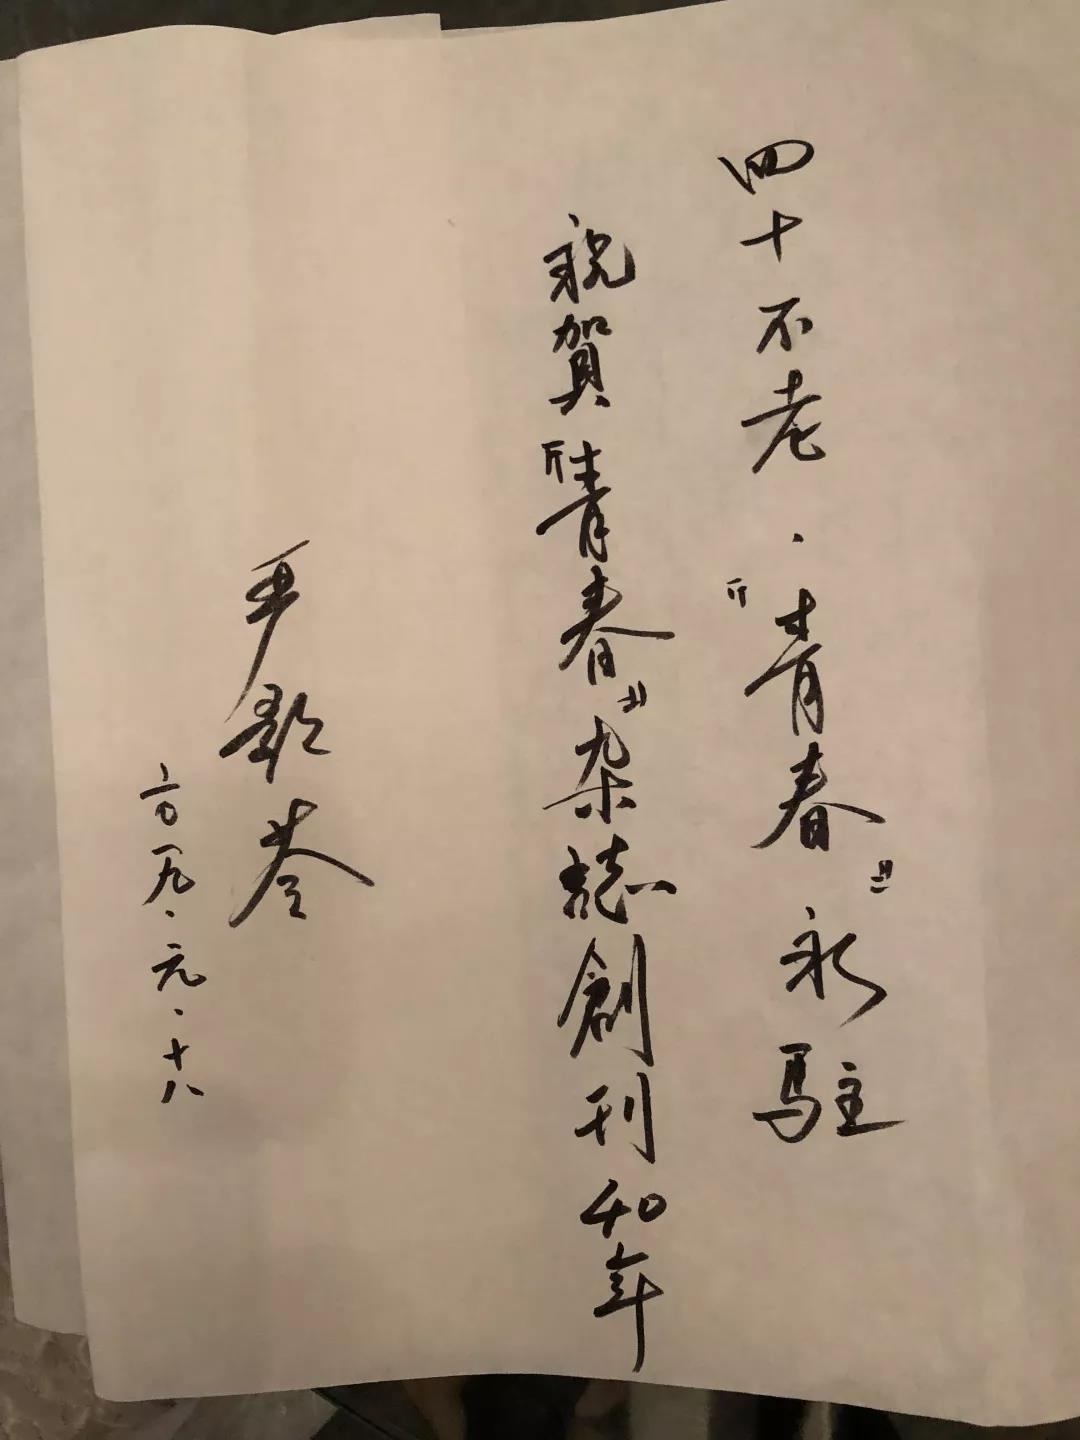 四十不老·『青春』永駐
祝賀『青春』杂誌創刊40年
严歌苓
二〇一九·元·十八